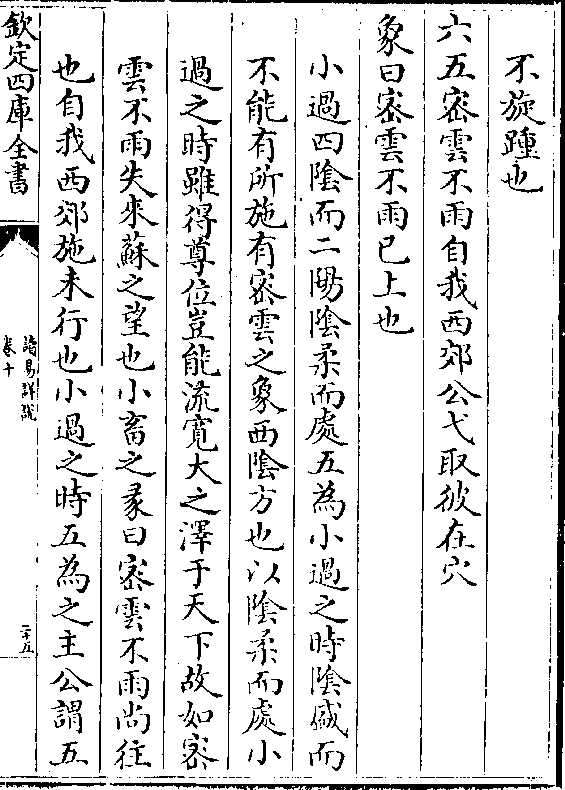 不旋踵也
六五密雲不雨自我西郊公弋取彼在穴
象曰密雲不雨已上也
小過四陰而二陽陰柔而處五為小過之時陰盛而
不能有所施有密雲之象西陰方也以陰柔而處小
過之時雖得尊位豈能流寛大之澤于天下故如密
雲不雨失來蘇之望也小畜之彖曰密雲不雨尚往
也自我西郊施未行也小過之時五為之主公謂五
欽定四庫全書
讀易詳說
卷十
二十五